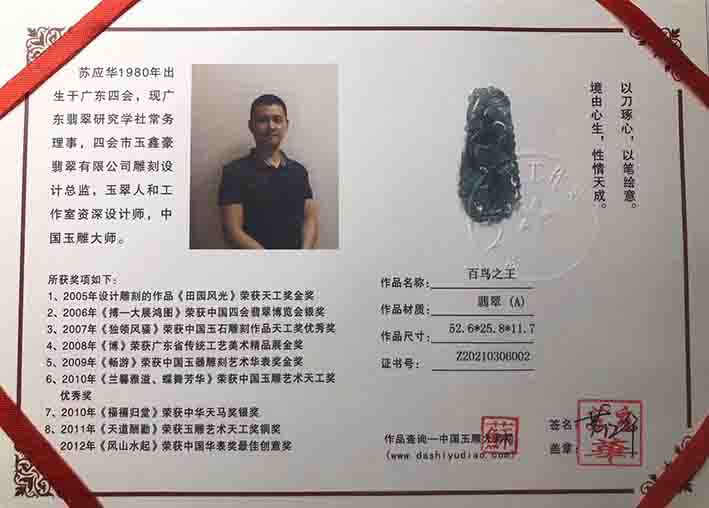 苏应华1980年出
生于广东四会，现广
东翡翠研究学社常务
理事，四会市玉鑫豪
翡翠有限公司雕刻设
计总监，玉翠人和工
作室资深设计师，中
国玉雕大师。
以刀琢心，以笔绘意。
境由心生，性情天成。
所获奖项如下：
1、2005年设计雕刻的作品《田园风光》荣获天工奖金奖
2、2006年《博一大展鸿图》荣获中国四会翡翠博览会银奖
3、2007年《独领风骚》荣获中国玉石雕刻作品天工奖优秀奖
4、2008年《博》荣获广东省传统工艺美术精品展金奖
5、2009年《畅游》荣获中国玉器雕刻艺术华表奖金奖
6、2010年《兰馨雅溢、蝶舞芳华》荣获中国玉雕艺术天工奖
优秀奖
7、2010年《福禧归堂》荣获中华天马奖银奖
8、2011年《天道酬勤》荣获玉雕艺术天工奖铜奖
2012年《风山水起》荣获中国华表奖最佳创意奖
作品名称： 百鸟之王
作品材质： 翡翠（A）
作品尺寸： 52.6*25.8*11.7
证书号： Z20210306002
作品查询—中国玉雕大师网
(www.dashiyudiao.com)
蘇
签名：
盖章：